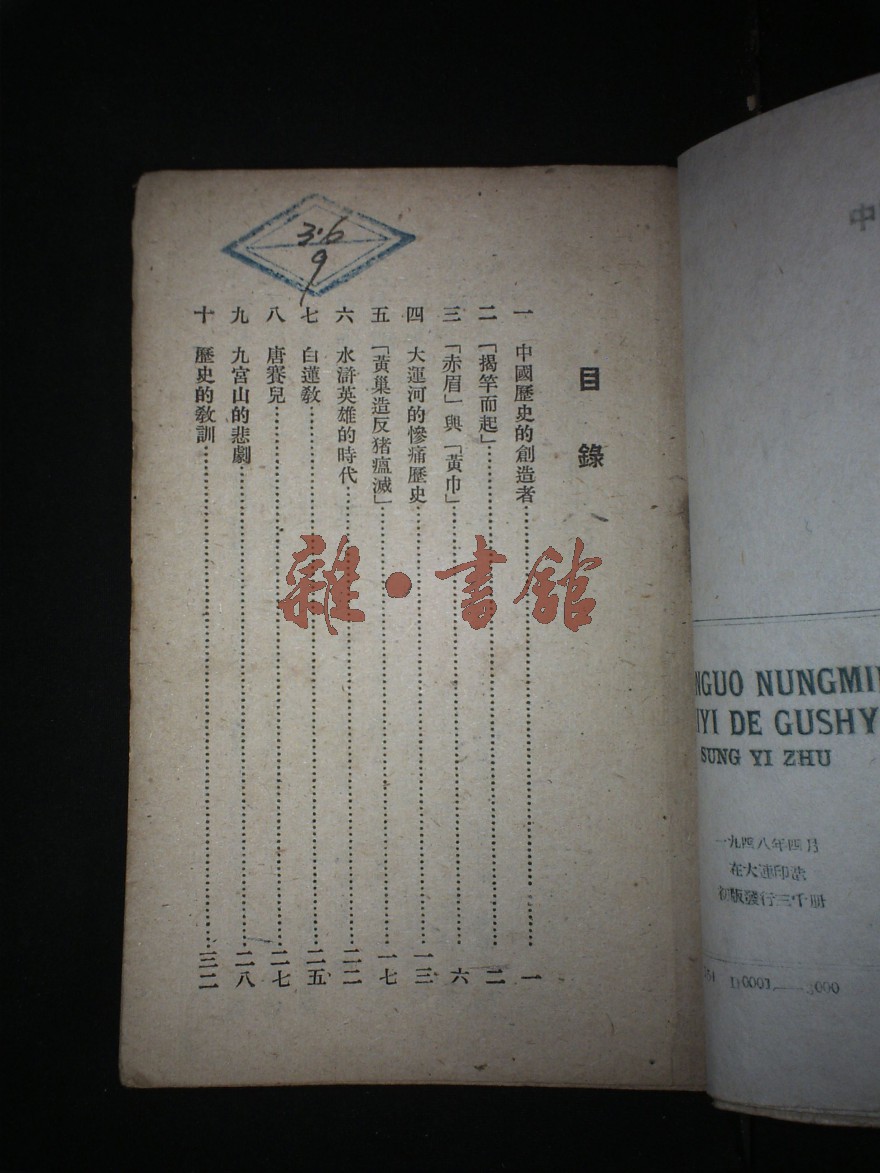 中
NGUO NUNGMI
IYI DE GUSHY
SUNG YI ZHU
一九四八年四月
在大連印造
初版發行三千册
D0001——3000
3·6
9
目錄
一 中國歷史的創造者 一
二 「揭竿而起」 二
三 「赤眉」與「黃巾」 六
四 大運河的慘痛歷史 一三
五 「黃巢造反猪瘟滅」 一七
六 水滸英雄的時代 二二
七 白蓮教 二五
八 唐賽兒 二七
九 九宮山的悲劇 二八
十 歷史的教訓 三二
雜·書館